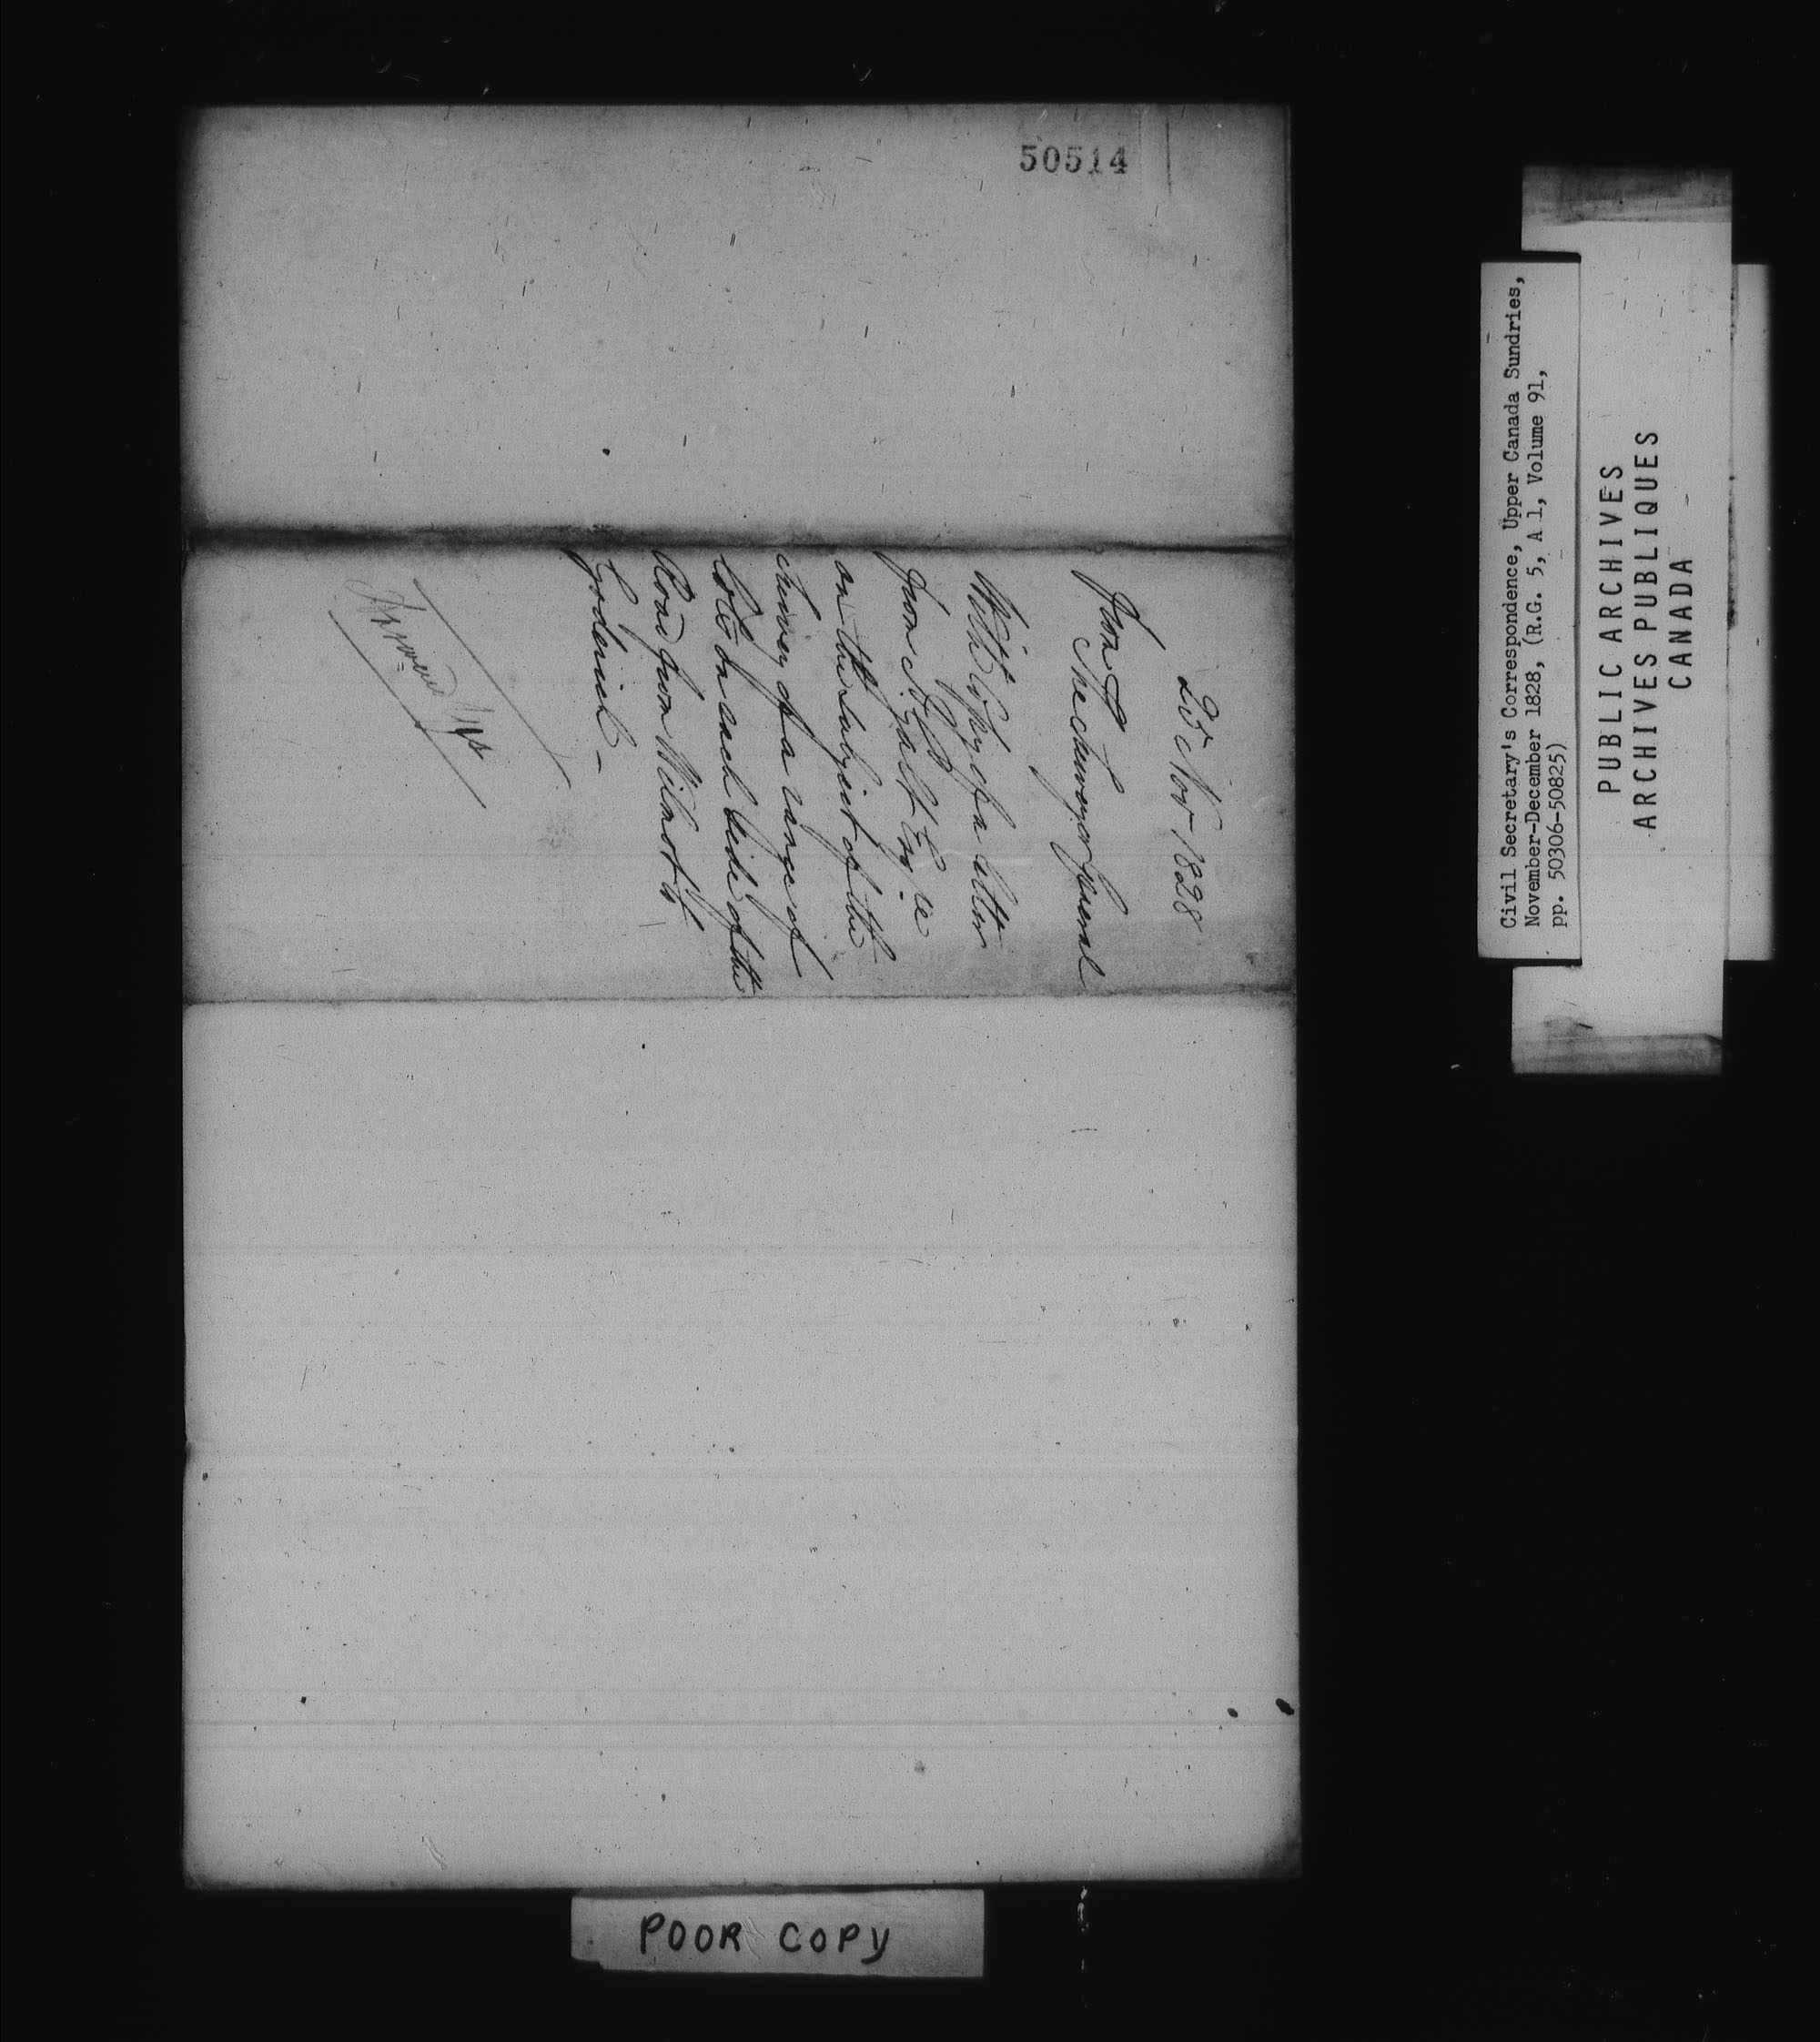 50514
25 Nov 1828
From
The Surveyor General
With Copy of a letter
from Galt Esqre
on the subject of the
Survey of a range of
lots on each side of the
Road from Wilmot to
Goderich –
Civil Secretary's Correspondence, Upper Canada Sundries,
November-December 1828, (R.G. 5, A 1, Volume 91,
pp. 50306-50825)
PUBLIC ARCHIVES
ARCHIVES PUBLIQUES
CANADA
POOR COPY